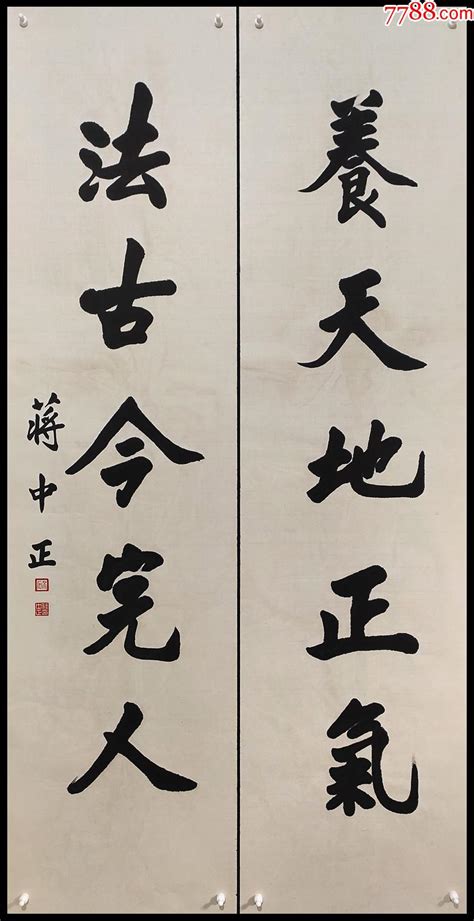 7788.com
養天地正氣
法古今完人
蔣中正